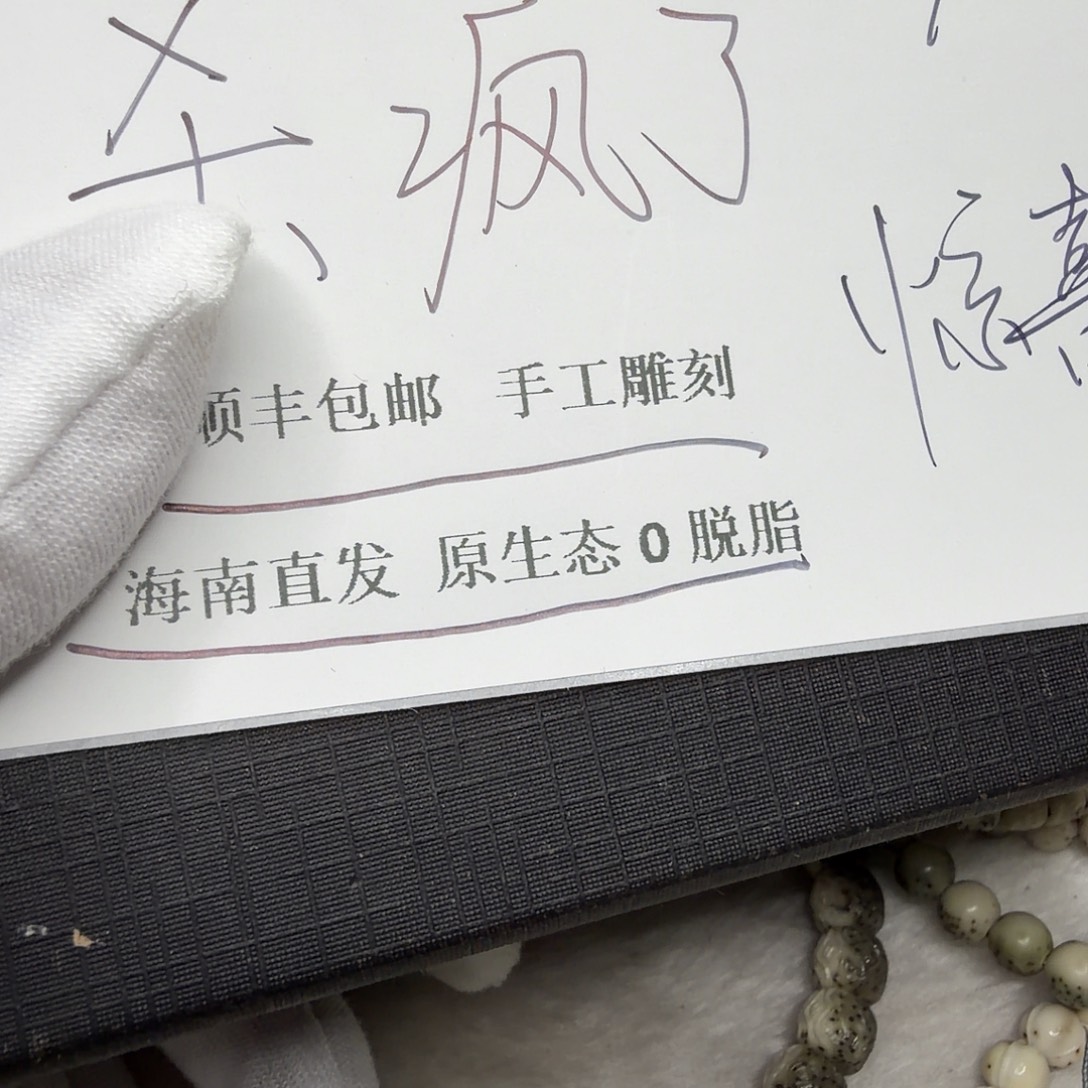 杀疯了
惊喜
顺丰包邮 手工雕刻
海南直发 原生态0脱脂